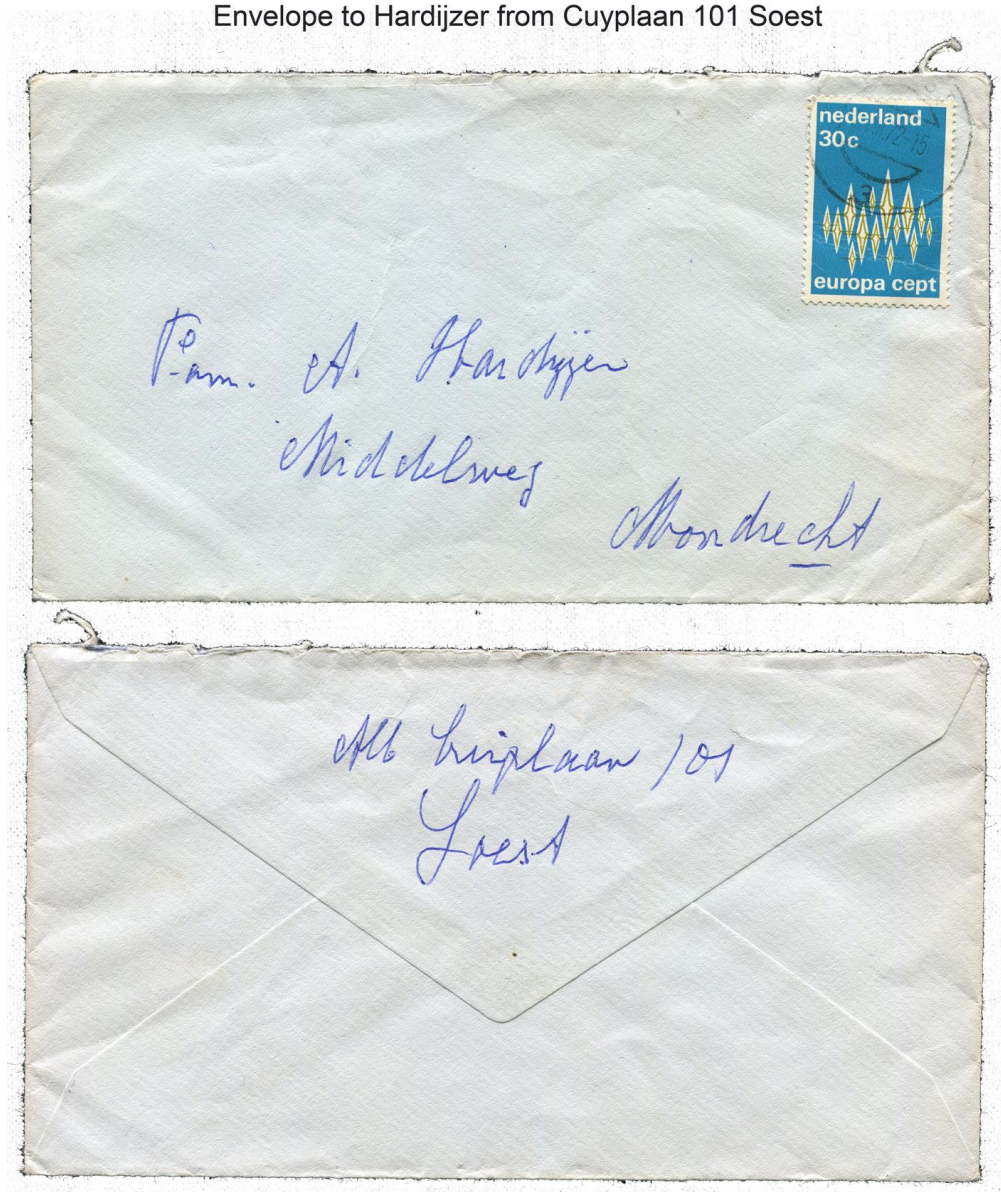 Envelope to Hardijzer from Cuyplaan 101 Soest
nederland
30c
72-15
3
europa cept
Fam. A. Hardijzer
Middelweg
Moordrecht
Alb Cuiplaan 101
Soest